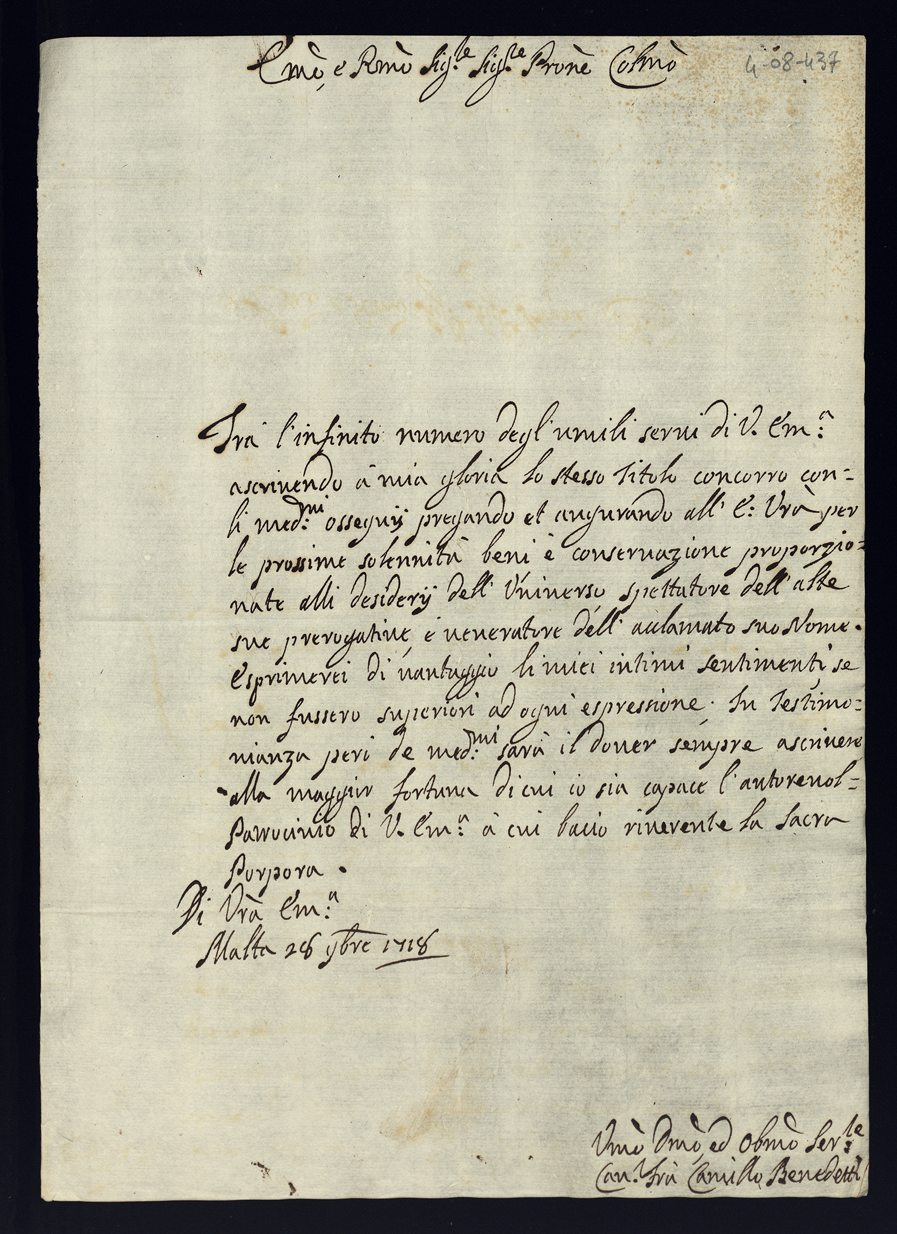 Emõ, e Rmõ Sig.re Sig.re Pronẽ Colmõ
4-08-437
Trà l'infinito numero degl'umili servi di V. Em.a
ascrivendo à mia gloria lo stesso Titolo concorro con-
li med.mi ossequij pregando et augurando all' E: Vrã per
le prossime solennità beni è conservazione proporzio=
nate alli desiderij dell' Vniverso spettatore dell' alte
sue prerogative, è veneratore dell' acclamato suo Nome.
Esprimerei di vantaggio li miei intimi sentimenti, se
non fussero superiori ad ogni espressione. In Testimo=
nianza però de med.mi sarà il dover sempre ascrivere
alla maggior fortuna di cui io sia capace l'autorevol-
Patrocinio di V. Em.a à cui bacio riverente la Sacra
Porpora.
Di Vrã Em.a
Malta 28 9bre 1718
Vmõ Dmõ, ed Obmõ Ser.le
Cau.r Frà Camillo Benedetti